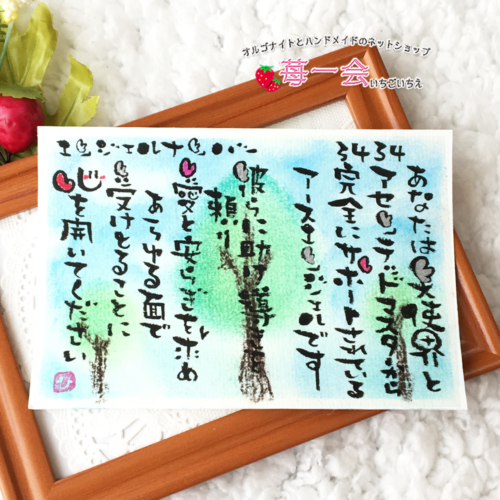 オルゴナイトとハンドメイドのネットショップ
苺一会
いちごいちえ
エンジェルナンバー
3434
あなたは天使界と
アセンデッドマスターから
完全にサポートされている
アースエンジェルです
彼らに助け導きを
頼り
愛と安らぎを求め
あらゆる面で
受けとることに
心を開いてください